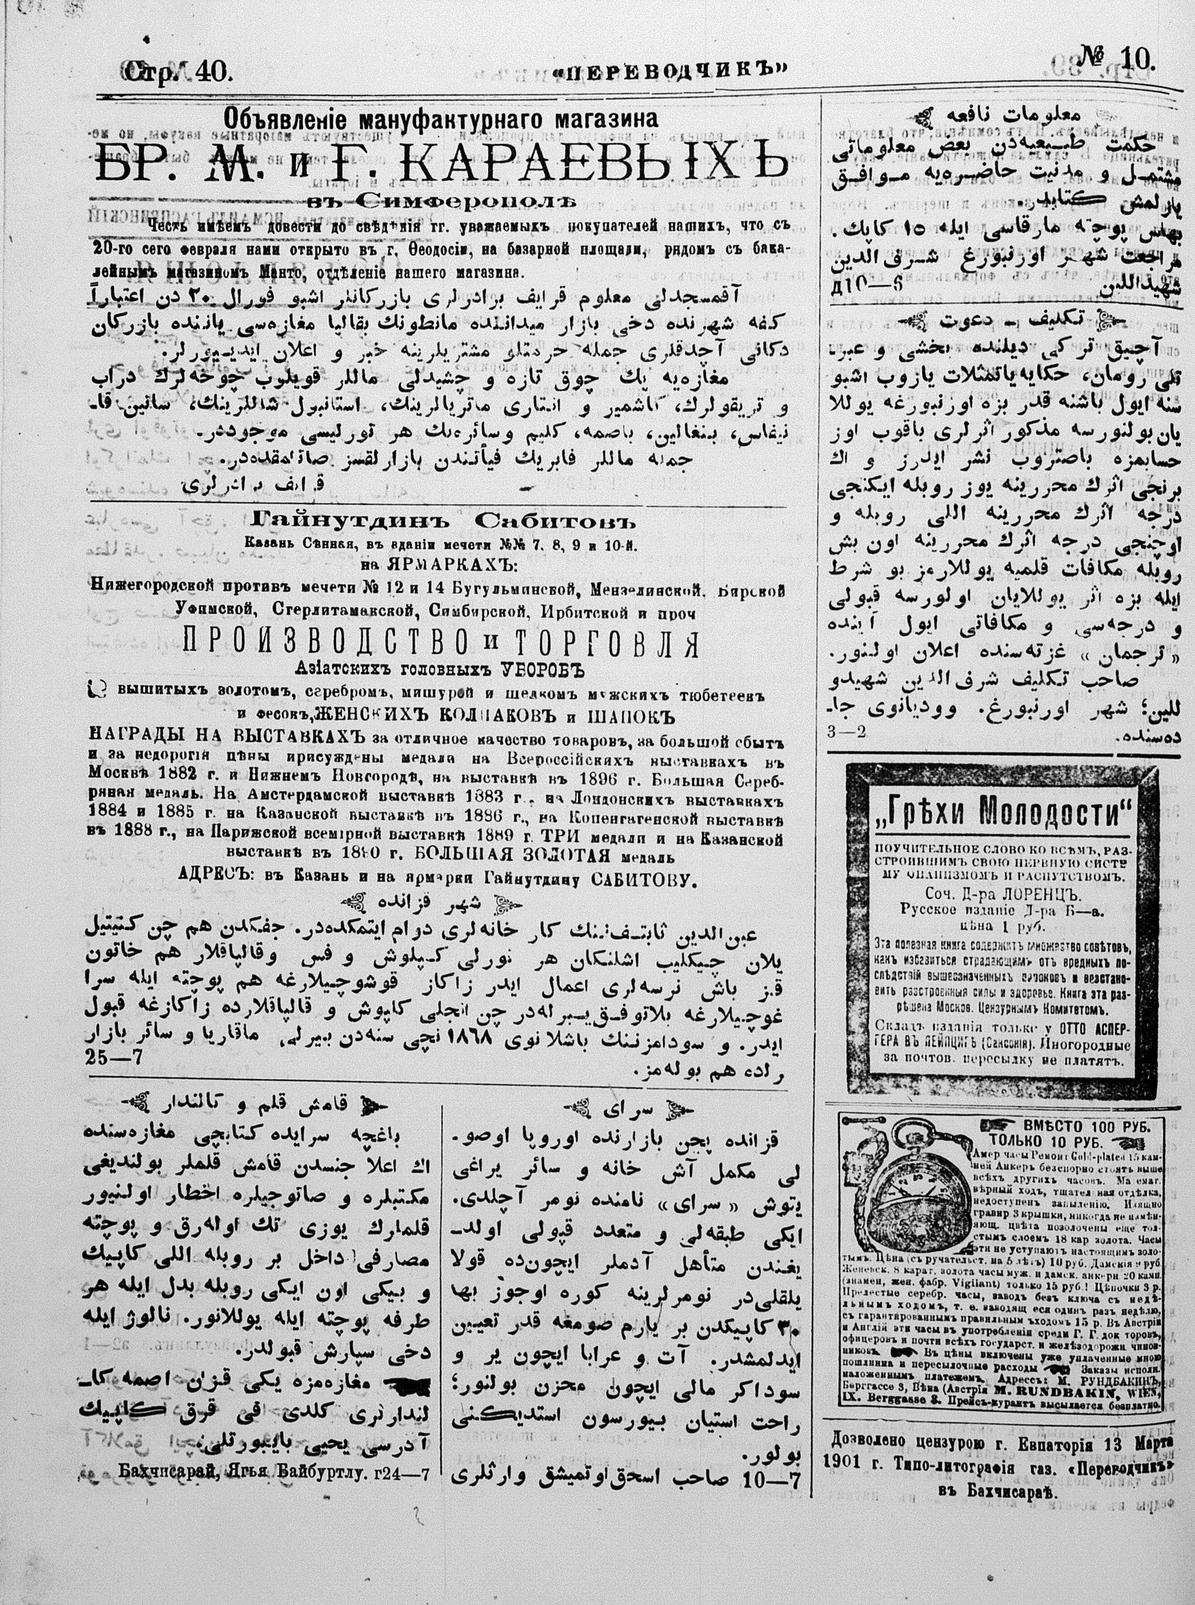 Стр. 40.
«ПЕРЕВОДЧИКЪ»
№ 10.
Объявленіе мануфактурнаго магазина
БР. М. и Г. КАРАЕВЫХЪ
въ Симферополѣ
Честь имѣемъ довести до свѣдѣнія гг. уважаемыхъ покупателей нашихъ, что съ
20-го сего февраля нами открыто въ г. Ѳеодосіи, на базарной площади, рядомъ съ бака-
лейнымъ магазиномъ Манто, отдѣленіе нашего магазина.
آقمسجدلی معلوم قرایف برادرلری بازرکانلر اشبو فورال ٢٠ دن اعتباراً
کفه شهرنده دخی بازار میداننده مانطونك بقالیا مغازه‌سی یاننده بازرکان
دکانی آچدقلری جمله حرمتلو مشتریلرینه خبر و اعلان ایدیورلر.
مغازه‌یه پك چوق تازه و چشیدلی ماللر قویلوب چوخه‌لرك دراب
و تریقولرك، کاشمیر و انتاری ماتریالرینك، استانبول شاللرینك، ساتین فا-
نیفاس، بنغالین، باصمه، کلیم وسائره‌نك هر تورلیسی موجوددر.
جمله ماللر فابریك فیأتندن بازارلقسز صاتامقده‌در.
قرایف برادرلری
Гайнутдинъ Сабитовъ
Казань Сѣнная, въ зданіи мечети №№ 7, 8, 9 и 10-й.
на ЯРМАРКАХЪ:
Нижегородской противъ мечети № 12 и 14 Бугульминской, Мензелинской, Бирской
Уфимской, Стерлитамакской, Симбирской, Ирбитской и проч
ПРОИЗВОДСТВО и ТОРГОВЛЯ
Азіатскихъ головныхъ УБОРОВЪ
вышитыхъ золотомъ, серебромъ, мишурой и шелкомъ мужскихъ тюбетеекъ
и фесокъ, ЖЕНСКИХЪ КОЛПАКОВЪ и ШАПОКЪ
НАГРАДЫ НА ВЫСТАВКАХЪ за отличное качество товаровъ, за большой сбытъ
и за недорогія цѣны присуждены медали на Всероссійскихъ выставкахъ въ
Москвѣ 1882 г. и Нижнемъ Новгородѣ, на выставкѣ въ 1896 г. Большая Сереб-
ряная медаль. На Амстердамской выставкѣ 1883 г., на Лондонскихъ выставкахъ
1884 и 1885 г. на Казанской выставкѣ въ 1886 г., на Копенгагенской выставкѣ
въ 1888 г., на Парижской всемірной выставкѣ 1889 г. ТРИ медали и на Казанской
выставкѣ въ 1890 г. БОЛЬШАЯ ЗОЛОТАЯ медаль
АДРЕСЪ: въ Казань и на ярмарки Гайнутдину САБИТОВУ.
شهر قزانده
عین‌الدین ثابتف‌نینك کار خانه‌لری دوام ایتمکده‌در. جفکدن هم چن
یلان چیکلیب اشلنکان هر نورلی کپلوش و فس وقالپاقلار هم خاتون
قز باش نرسه‌لری اعمال ایدر زاکاز قوشوچیلارغه هم پوچته ایله سرا
غوچیلارغه بلاتوفیق یبرله‌در چن انجلی کاپوش و قالپاقلارده زاکازغه قبول
ایدر. و سودامزننك باشلانوی ١٨٦٨ نچی سنه‌دن بیرلی، ماقاریا و سائر بازار
راده هم بوله‌مز.
25—7
سرای
قزانده پچن بازارنده اوروپا اوصو.
لی مکمل آش خانه و سائر یراغی
یتوش «سرای» نامنده نومر آچلدی.
ایکی طبقه‌لی و متعدد قپولی اولد-
یغندن متأهل آدملر ایچونده قولا
یلقلی‌در نومرلرینه کوره اوجوز بها
٣٠ کاپیکدن بر یارم صومغه قدر تعیین
ایدلمشدر. آت و عرابا ایچون یر و
سوداکر مالی ایچون مخزن بولنور؛
راحت استیان بیورسون استدیکنی
بولور.
10—7 صاحب اسحق اوتمیشق وارثلری
قامش قلم و کالندار
باغچه سرایده کتابچی مغازه‌سنده
اك اعلا جنسدن قامش قلملر بولندیغی
مکتبلره و صاتوجیلره اخطار اولنیور
قلمارك یوزی تك اوله‌رق و پوچته
مصارفی داخل بر روبله اللی کاپیك
و بیکی اون ایکی روبله بدل ایله هر
طرفه پوچته ایله یوللانور. نالوژ ایله
دخی سپارش قبولدر.
مغازه‌مزه یکی قزان اصمه کا-
لندارلری کلدی افی قرق کاپیك
آدرسی یحیی بایبورتلی.
Бахчисарай, Ягъя Байбуртлу. г24—7
معلومات نافعه
حکمت طبیعیه‌دن بعض معلوماتی
مشتمل و مدنیت حاضره‌یه موافق
یازلمش کتابدر.
بهاس پوچته مارقاسی ایله ١٥ کاپك.
مراجعت شهر اورنبورغ شرف الدین
شهیداللین
д10—6
تکلیف - دعوت
آچیق ترکی دیلنده یخشی و عبر-
تلی رومان، حکایه یاتمثلات یازوب اشبو
سنه ایول باشنه قدر بزه اورنبورغه یوللا
یان بولنورسه مذکور اثرلری باقوب اوز
حسابمزه باصتروب نشر ایدرز و اك
برنجی اثرك محررینه یوز روبله ایکنجی
درجه اثرك محررینه اللی روبله و
اوچنجی درجه اثرك محررینه اون بش
روبله مکافات قلمیه یوللارمز بو شرط
ایله بزه اثر یوللایان اولورسه قبولی
و درجه‌سی و مکافاتی ایول آینده
«ترجمان» غزته‌سنده اعلان اولنور.
صاحب تکلیف شرف الدین شهیدو
للین؛ شهر اورنبورغ. وودیانوی جا-
ده‌سنده.
3—2
„Грѣхи Молодости“
ПОУЧИТЕЛЬНОЕ СЛОВО КО ВСѢМЪ, РАЗ-
СТРОИВШИМЪ СВОЮ НЕРВНУЮ СИСТЕ
МУ ОНАНИЗМОМЪ И РАСПУТСТВОМЪ.
Соч. Д-ра ЛОРЕНЦЪ.
Русское изданіе Д-ра Б—а.
цѣна 1 руб.
Эта полезная книга содержитъ множество совѣтовъ,
какъ избавиться страдающимъ отъ вредныхъ по-
слѣдствій вышесозначенныхъ пороковъ и возстано-
вить разстроенныя силы и здоровье. Книга эта раз-
рѣшена Москов. Цензурнымъ Комитетомъ.
Складъ изданія только у ОТТО АСПЕР-
ГЕРА ВЪ ЛЕЙПЦИГѢ (Саксонія). Иногородные
за почтов. пересылку не платятъ.
ВМѢСТО 100 РУБ.
ТОЛЬКО 10 РУБ.
Амер часы Ремонт Gold-plated 15 кам-
ней Анкеръ безспорно стоятъ выше
всѣхъ другихъ часовъ. Ма емат.
вѣрный ходъ, тщательная отдѣлка,
недоступенъ запыленію. Изящно
гравир 3 крышки, никогда не измѣн-
яющ. цвѣта позолочены еще тол-
стымъ слоемъ 18 кар золота. Часы
эти не уступаютъ настоящимъ золо-
тымъ. Цѣна (съ ручательст. на 5 лѣтъ) 10 руб. Дамскія 9 руб.
Женевск. 8 карат. золота часы муж. и дамск. анкерн 20 камн.
(знамен, жен. фабр. Vigilant) только 15 руб.! Цѣпочки 3 р.
Прелестые серебр. часы, заводъ безъ ключа съ недѣ-
льнымъ ходомъ, т. е. заводящ еся одинъ разъ недѣлю,
съ гарантированнымъ правильнымъ ъходомъ 15 р. Въ Австріи
и Англій эти часы въ употребленіи среди Г. Г. докторовъ,
офицеровъ и почти всѣхъ государст. и желѣзодорожн. чинов-
никовъ. Въ цѣны включены уже уплаченные мною
пошлинна и пересылочные расходы Заказы исполн.
наложеннымъ платежемъ. Адрессъ: М. РУНДБАКИНЪ,
Берггассе 3, Вѣна (Австрія M. RUNDBAKIN, WIEN,
IX. Berggasse 3. Прейсъ-курантъ высылается безплатно.
Дозволено цензурою г. Евпаторія 13 Марта
1901 г. Типо-литографія газ. «Переводчикъ»
въ Бахчисараѣ.